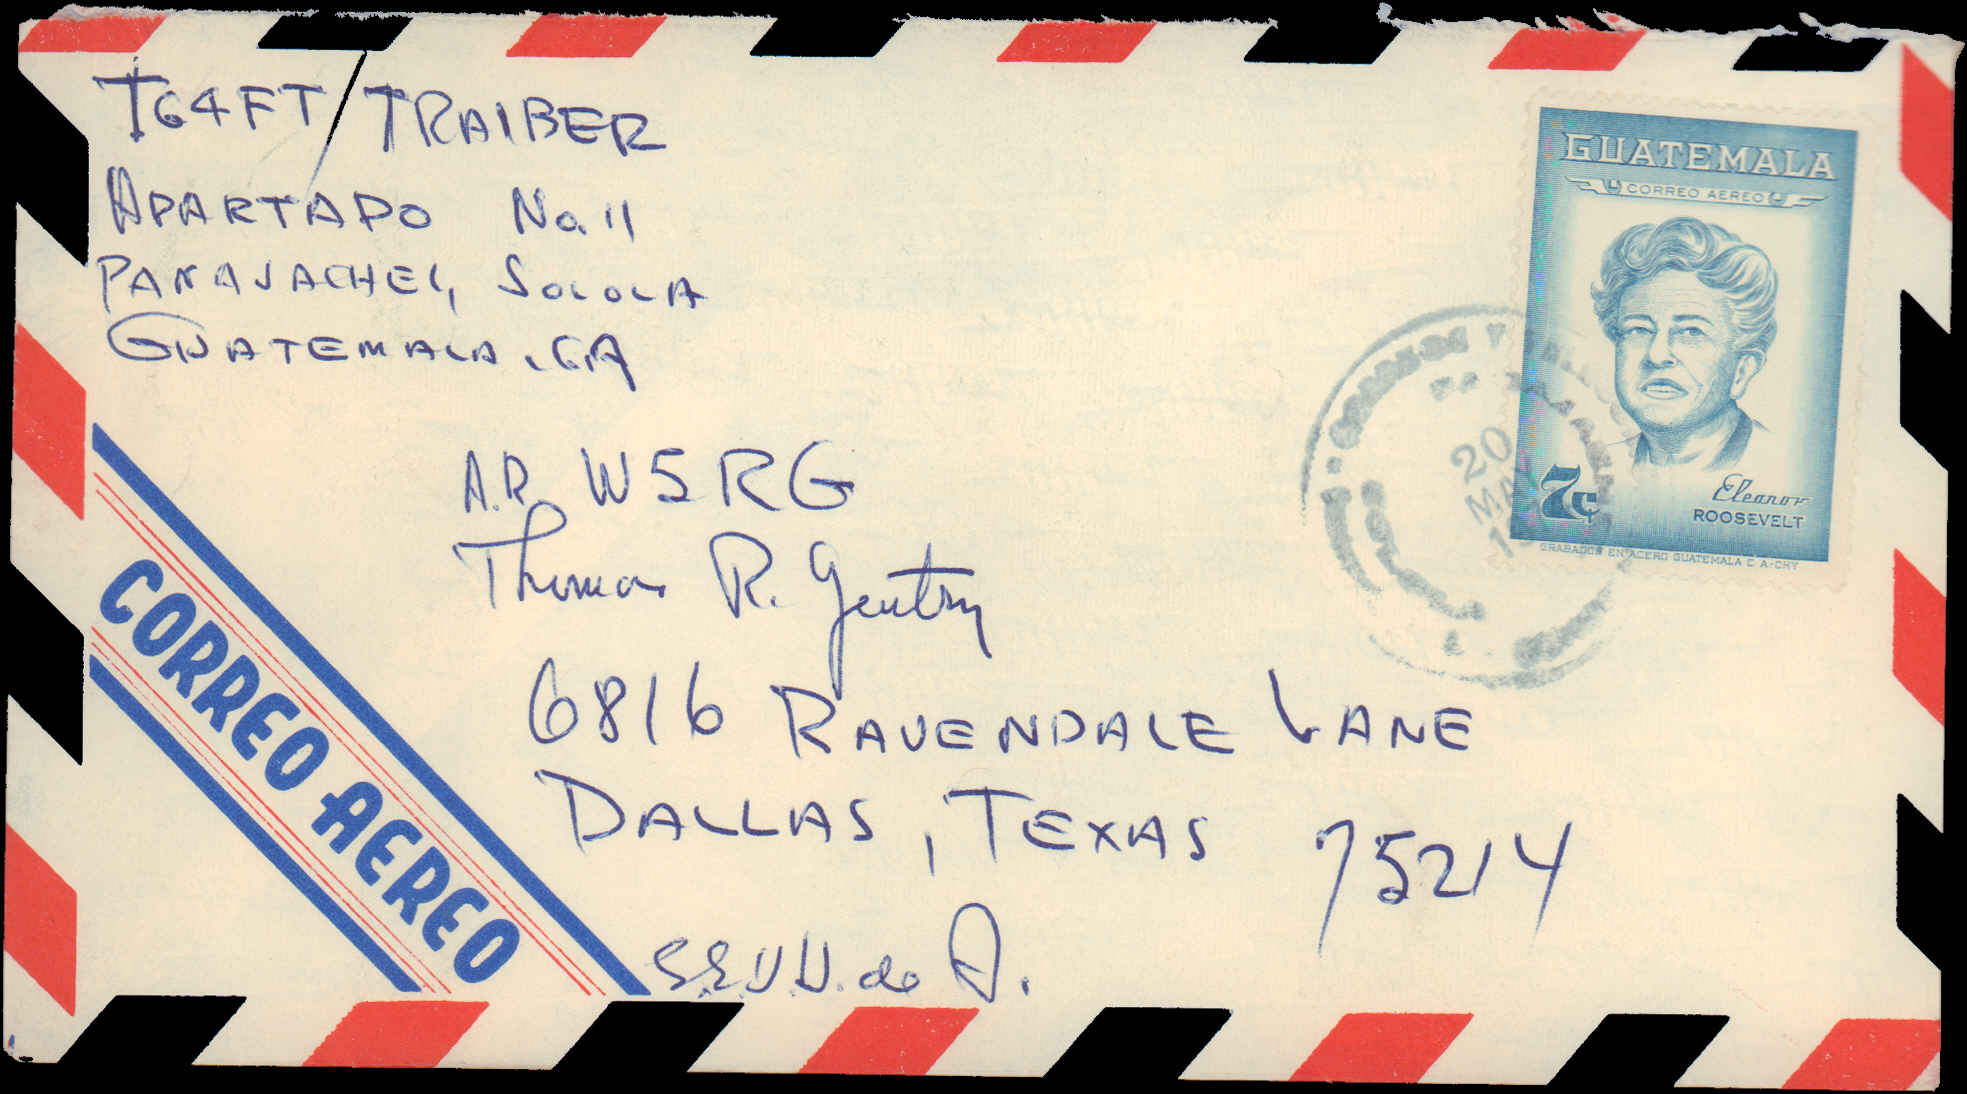 TG4FT / TRAIBER
APARTADO No. 11
PANAJACHEL, SOLOLA
GUATEMALA, CA
GUATEMALA
CORREO AEREO
7¢
Eleanor
ROOSEVELT
GRABADOS EN ACERO GUATEMALA C A-CHY
20
MAY
A.R. W5RG
Thomas R. Gentry
6816 RAVENDALE LANE
DALLAS, TEXAS 75214
E.E.U.U. de A.
CORREO AEREO